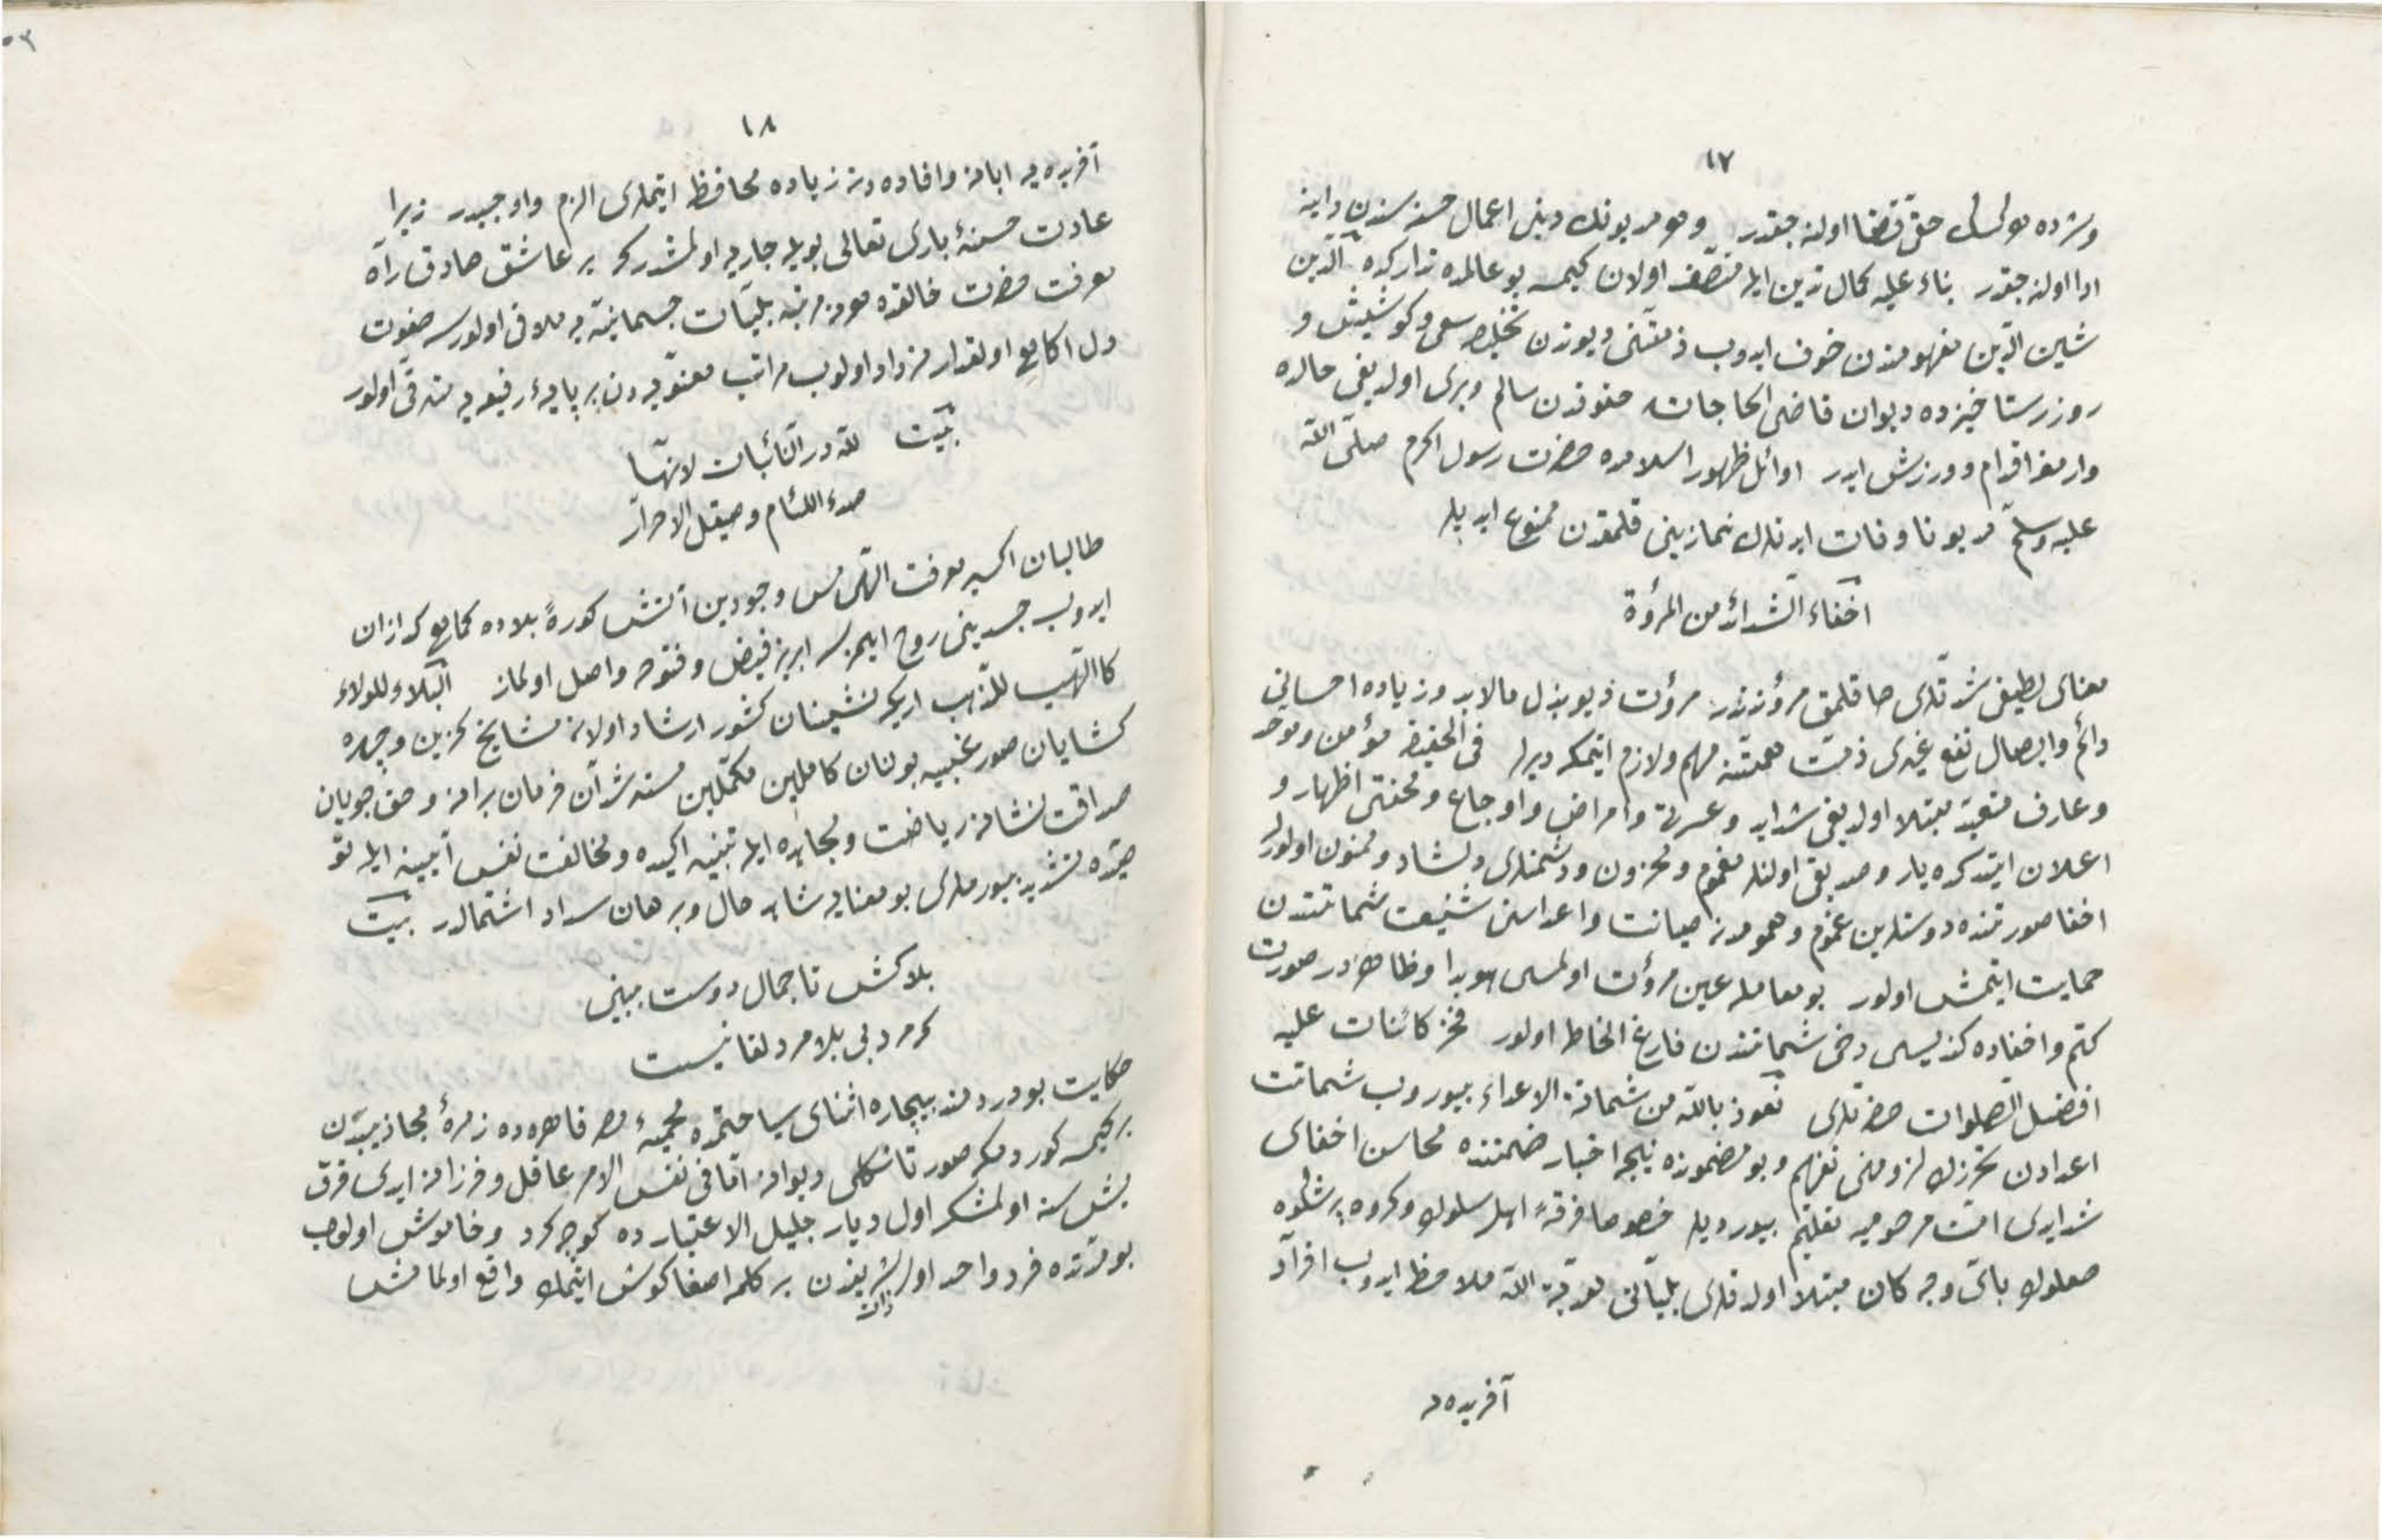 ١٧
ونزده مولى حق قضا اولنه جقدر ومومربونك دينى اعمال حسنه سندن داينه
ادا اولنه جقدر بناء عليه كمال تدين ايله متصف اولان كيمسه بو عالمده تداركده الدين
شين الدين مفهومندن خوف ايدوب ذمتنى ديوندن تخليصه سعى وكوشش و
روز رستاخيزده ديوان قاضى الحاجاته حقوقدن سالم وبرى اولديغى حالده
وارمغه اقدام وورزش ايدر اوائل ظهور اسلامده حضرت رسول اكرم صلى الله
عليه وسلم مديونا وفات ايدنلرك نمازينى قلمقدن ممنوع ايديلر
اخفاء الشدائد من المروءة
معناى لطيفى شدتلرى اخفا قلمق مروتدندر مروت ديو بذل مالابد وزياده احسانى
دائم وايصال نفع غيرى ذمت همتنه مهم ولازم ايتمكه ديرلر فى الحقيقه مؤمن وموحد
وعارف متعبد مبتلا اولديغى شدايد وعسرت وامراض واوجاع ومحنتى اظهار و
اعلان ايتدكده يار وصديقى اولنلر مغموم ومحزون ودشمنلرى دلشاد وممنون اولورلر
اخفا صورتنده دوستلرين غموم وهمومدن صيانت واعداسنى شنيعت شماتتدن
حمايت ايتمش اولور بو معامله عين مروت اولمسى هويدا وظاهردر صورت
كتم واخفاده كنديسى دخى شماتتدن فارغ الخاطر اولور فخر كائنات عليه
افضل الصلوات حضرتلرى نعوذ بالله من شماتة الاعداء بيوروب شماتت
اعدادن تحرزك لزومنى تفهيم وبو مضمونده نيجه اخبار ضمننده محاسن اخفاى
شدايدى امت مرحوميه تعليم بيورديلر خصوصا فرقهٔ اهل سلوك وكروه پرشكوه
صعلوك باى وجه كان مبتلا اولدقلرى بلياتى موهبة الله ملاحظه ايدوب افراد
آفريده يه
١٨
آفريده يه ابانه وافاده دن زياده محافظه ايتملرى الزم واوجبدر زيرا
عادت حسنهٔ بارى تعالى بويله جاريه اولمشدركه بر عاشق صادق راه
معرفت حضرت خالقده هر نه مرتبه بليات جسمانيه يه ملاقى اولورسه صفوت
دل آكاهى اولقدر مزداد اولوب مراتب معنويه دن بر پايهٔ رفيعه يه مترقى اولور
بيت لله در النائبات لانها
صدء اللئام وصيقل الاحرار
طالبان اكسير معرفت الهى مس وجودين آتش كورهٔ بلاده كماهى كدازان
ايدوب جسدينى روح ايلمزسه ابريز فيض وفتوحه واصل اولماز البلاء للولاء
كاللهيب للذهب اريكه نشينان كشور ارشاد اولان مشايخ كزين وچهره
كشايان صور غيبيه بولنان كاملين مكملين مسترشدان فرمان برانه وحق جويان
صداقت نشانه رياضت ومجاهده ايله تنبيه اكيده ومخالفت نفس آبيينه ايله تقو
يتده تشديد بيورملرى بو معنايه شاهد حال وبرهان سداد اشتمالدر بيت
بلاكش تا جمال دوست بينى
كه مرد بى بلا مرد لقا نيست
حكايت بو دردمند بيچاره اثناى سياحتمده محميهٔ مصر قاهره ده زمرهٔ مجاذيبدن
بر كيمسه كوردمكه صورتا شكلى ديوانه اما فى نفس الامر عاقل وفرزانه ايدى قرق
بش سنه اولمشكه اول ديار جليل الاعتبارده كوچه كرد وخاموش اولوب
بو مدتده فرد واحد اول ذات شريفدن بر كلمه اصغا كوش ايتمك واقع اولمامش